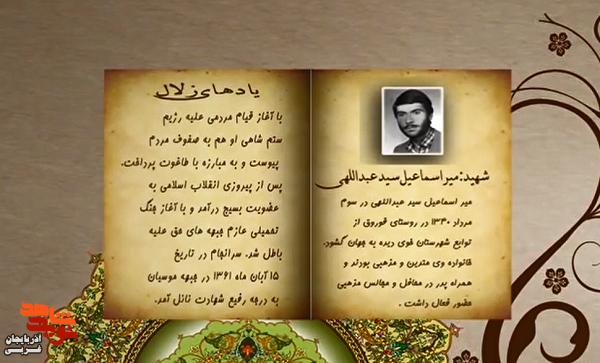 شهید: میراسماعیل سیدعبداللهی
میر اسماعیل سید عبداللهی در سوم
مرداد ۱۳۴۰ در روستای قوروق از
توابع شهرستان خوی دیده به جهان گشود.
خانواده وی متدین و مذهبی بودند و
همراه پدر در محافل و مجالس مذهبی
حضور فعال داشت .
یادهای زلال
با آغاز قیام مردمی علیه رژیم
ستم شاهی او هم به صفوف مردم
پیوست و به مبارزه با طاغوت پرداخت.
پس از پیروزی انقلاب اسلامی به
عضویت بسیج درآمد و با آغاز جنگ
تحمیلی عازم جبهه های حق علیه
باطل شد. سرانجام در تاریخ
۱۵ آبان ماه ۱۳۶۱ در جبهه موسیان
به درجه رفیع شهادت نائل آمد.
آذربایجان
غربی